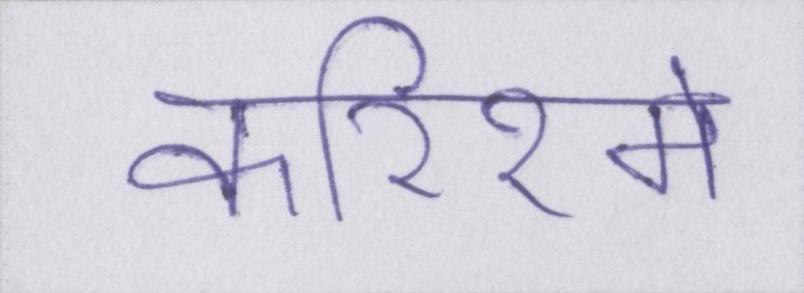 करिश्मे